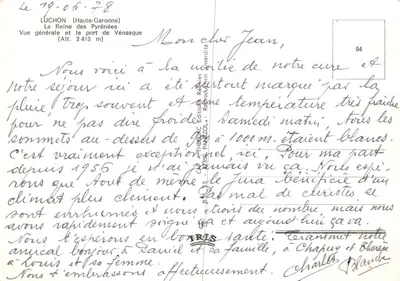 Le 19-06-78
LUCHON (Haute-Garonne)
La Reine des Pyrénées
Vue générale et le port de Vénasque
(Alt. 2413 m)
94
Mon cher Jean,
Nous voici à la moitié de notre cure et
notre séjour ici a été surtout marqué par la
pluie, trop souvent et une température très fraîche
pour ne pas dire froide. Samedi matin, tous les
sommets au-dessus de 900 à 1000 m. étaient blancs.
C'est vraiment exceptionnel, ici. Pour ma part
depuis 1956 je n'ai jamais vu ça. Nous espé-
rons que tout de même le Jura bénéficie d'un
climat plus clément. Pas mal de curistes se
sont enrhumés et nous étions du nombre, mais nous
avons rapidement soigné ça et aujourd'hui ça va.
Nous t'espérons en bonne santé. Transmet notre
amical bonjour à Daniel et sa famille, à Chapuy et
à Louis et sa femme.
Nous t'embrassons affectueusement.
Charles
Blanche
PARIS